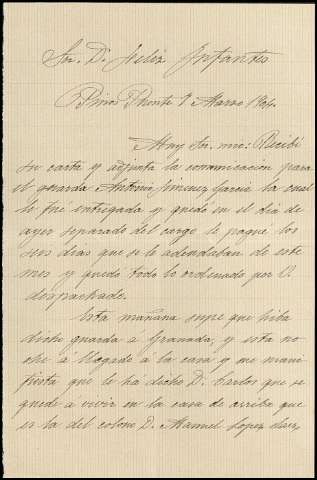 Sor. Dn. Feliz Infantes
Pinos Puente 7 Marzo 1904.
Muy Sr. mio: Recibí
su carta y adjunta la comunicacion para
el guarda Antonio Jimenez Garcia la cual
le fué entregada y quedó en el dia de
ayer separado del cargo le pagué los
seis dias que se le adeudaban de este
mes y quedó todo lo ordenado por V.
despachado.
Esta mañana supe que hiba
dicho guarda a Granada, y esta no
che á llegado á la casa y me mani
fiesta que le ha dicho D. Carlos que se
quede á vivir en la casa de arriba que
es la del colono D. Manuel Lopez Saez